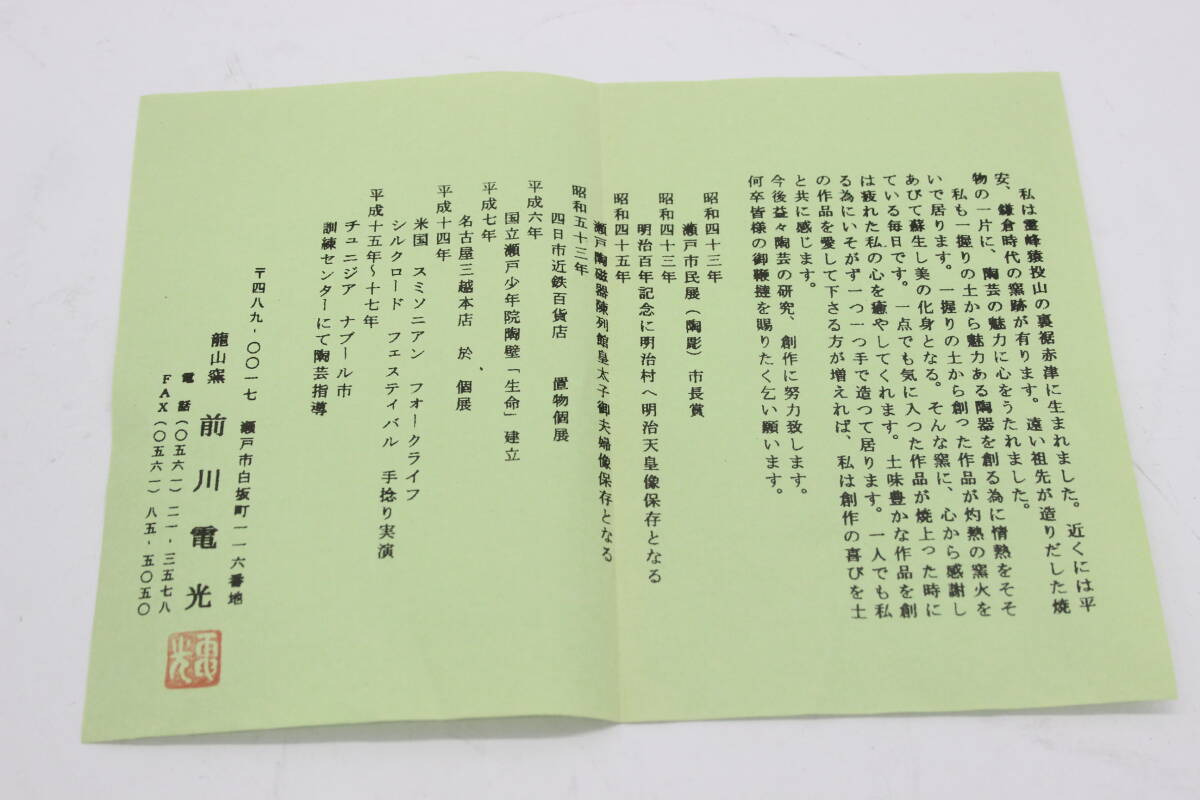 私は霊峰猿投山の裏裾赤津に生まれました。近くには平
安、鎌倉時代の窯跡が有ります。遠い祖先が造りだした焼
物の一片に、陶芸の魅力に心をうたれました。
私も一握りの土から魅力ある陶器を創る為に情熱をそそ
いで居ります。一握りの土から創った作品が灼熱の窯火を
あびて蘇生し美の化身となる。そんな窯に、心から感謝し
ている毎日です。一点でも気に入つた作品が焼上った時に
は疲れた私の心を癒やしてくれます。土味豊かな作品を創
る為にいそがず一つ一つ手で造つて居ります。一人でも私
の作品を愛して下さる方が増えれば、私は創作の喜びを土
と共に感じます。
今後益々陶芸の研究、創作に努力致します。
何卒皆様の御鞭撻を賜りたく乞い願います。
昭和四十三年
瀬戸市民展（陶彫）市長賞
昭和四十三年
明治百年記念に明治村へ明治天皇像保存となる
昭和四十五年
瀬戸陶磁器陳列館皇太子御夫婦像保存となる
昭和五十三年
四日市近鉄百貨店 置物個展
平成六年
国立瀬戸少年院陶壁「生命」建立
平成七年
名古屋三越本店 於、個展
平成十四年
米国 スミソニアン フォークライフ
シルクロード フェスティバル 手捻り実演
平成十五年～十七年
チュニジア ナブール市
訓練センターにて陶芸指導
〒四八九-〇〇一七 瀬戸市白坂町一一六番地
龍山窯 前川電光
電話（〇五六一）二一-三五七八
FAX（〇五六一）八五-五〇五〇
電光